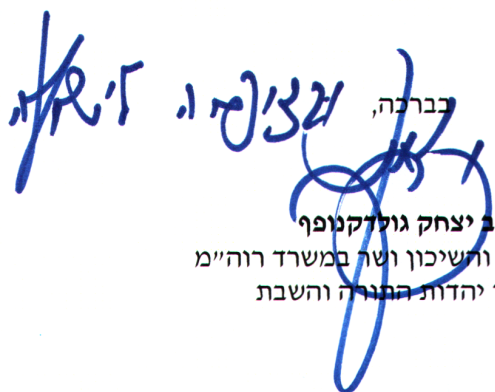 בברכה, ובציפיה לישועה
ב יצחק גולדקנופף
והשיכון ושר במשרד רוה״מ
יהדות התורה והשבת